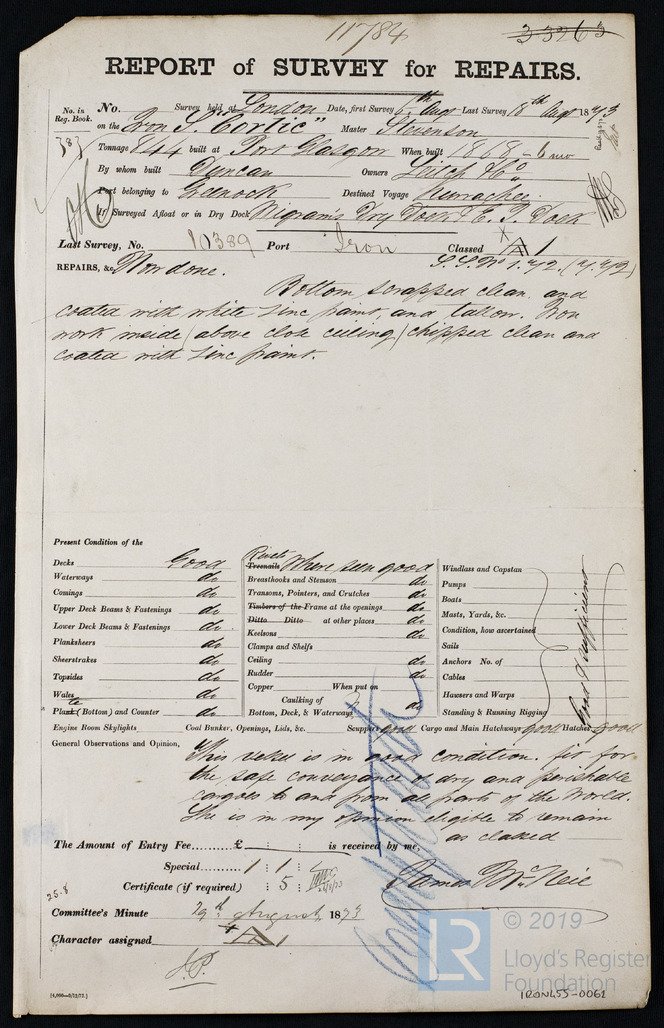 11784
33963
REPORT of SURVEY for REPAIRS.
No. in Reg. Book.
No. Survey held at London Date, first Survey 6th Augt Last Survey 18th Augt 1873
on the Iron S. "Cortic" Master Stevenson
Tonnage 844 built at Port Glasgow When built 1868 - 6 mo
By whom built Duncan Owners Leitch & Co
Port belonging to Greenock Destined Voyage Kurrachee
If Surveyed Afloat or in Dry Dock Wigram's Dry Dock & E. I. Dock
Last Survey, No. 10389 Port Iron Classed A 1
REPAIRS, &c. Now done.
Bottom scrapped clean and
coated with white zinc paint, and tallow. Iron
work inside (above close ceiling) chipped clean and
coated with zinc paint.
Present Condition of the
Decks Good
Waterways do
Comings do
Upper Deck Beams & Fastenings do
Lower Deck Beams & Fastenings do
Planksheers do
Sheerstrakes do
Topsides do
Wales do
Plate (Bottom) and Counter do
Engine Room Skylights
Rivets Treenails Where seen good
Breasthooks and Stemson do
Transoms, Pointers, and Crutches do
Timbers of the Frame at the openings do
Ditto Ditto at other places do
Keelsons do
Clamps and Shelfs
Ceiling do
Rudder do
Copper When put on
Caulking of Bottom, Deck, & Waterways do
Windlass and Capstan
Pumps
Boats
Masts, Yards, &c.
Condition, how ascertained
Sails
Anchors No. of
Cables
Hawsers and Warps
Standing & Running Rigging
Good & sufficient
Coal Bunker, Openings, Lids, &c. Scuppers good Cargo and Main Hatchways good Hatches good
General Observations and Opinion, This vessel is in good condition. fit for
the safe conveyance of dry and perishable
cargoes to and from all parts of the World.
She is in my opinion eligible to remain
as classed
The Amount of Entry Fee..........£ : : is received by me,
Special........ 1 : 1 :
Certificate (if required) : 5 :
James McNeil
25.8
Committee's Minute 29th August 1873
Character assigned A 1
© 2019
LR
Lloyd's Register
Foundation
IRON455-0061